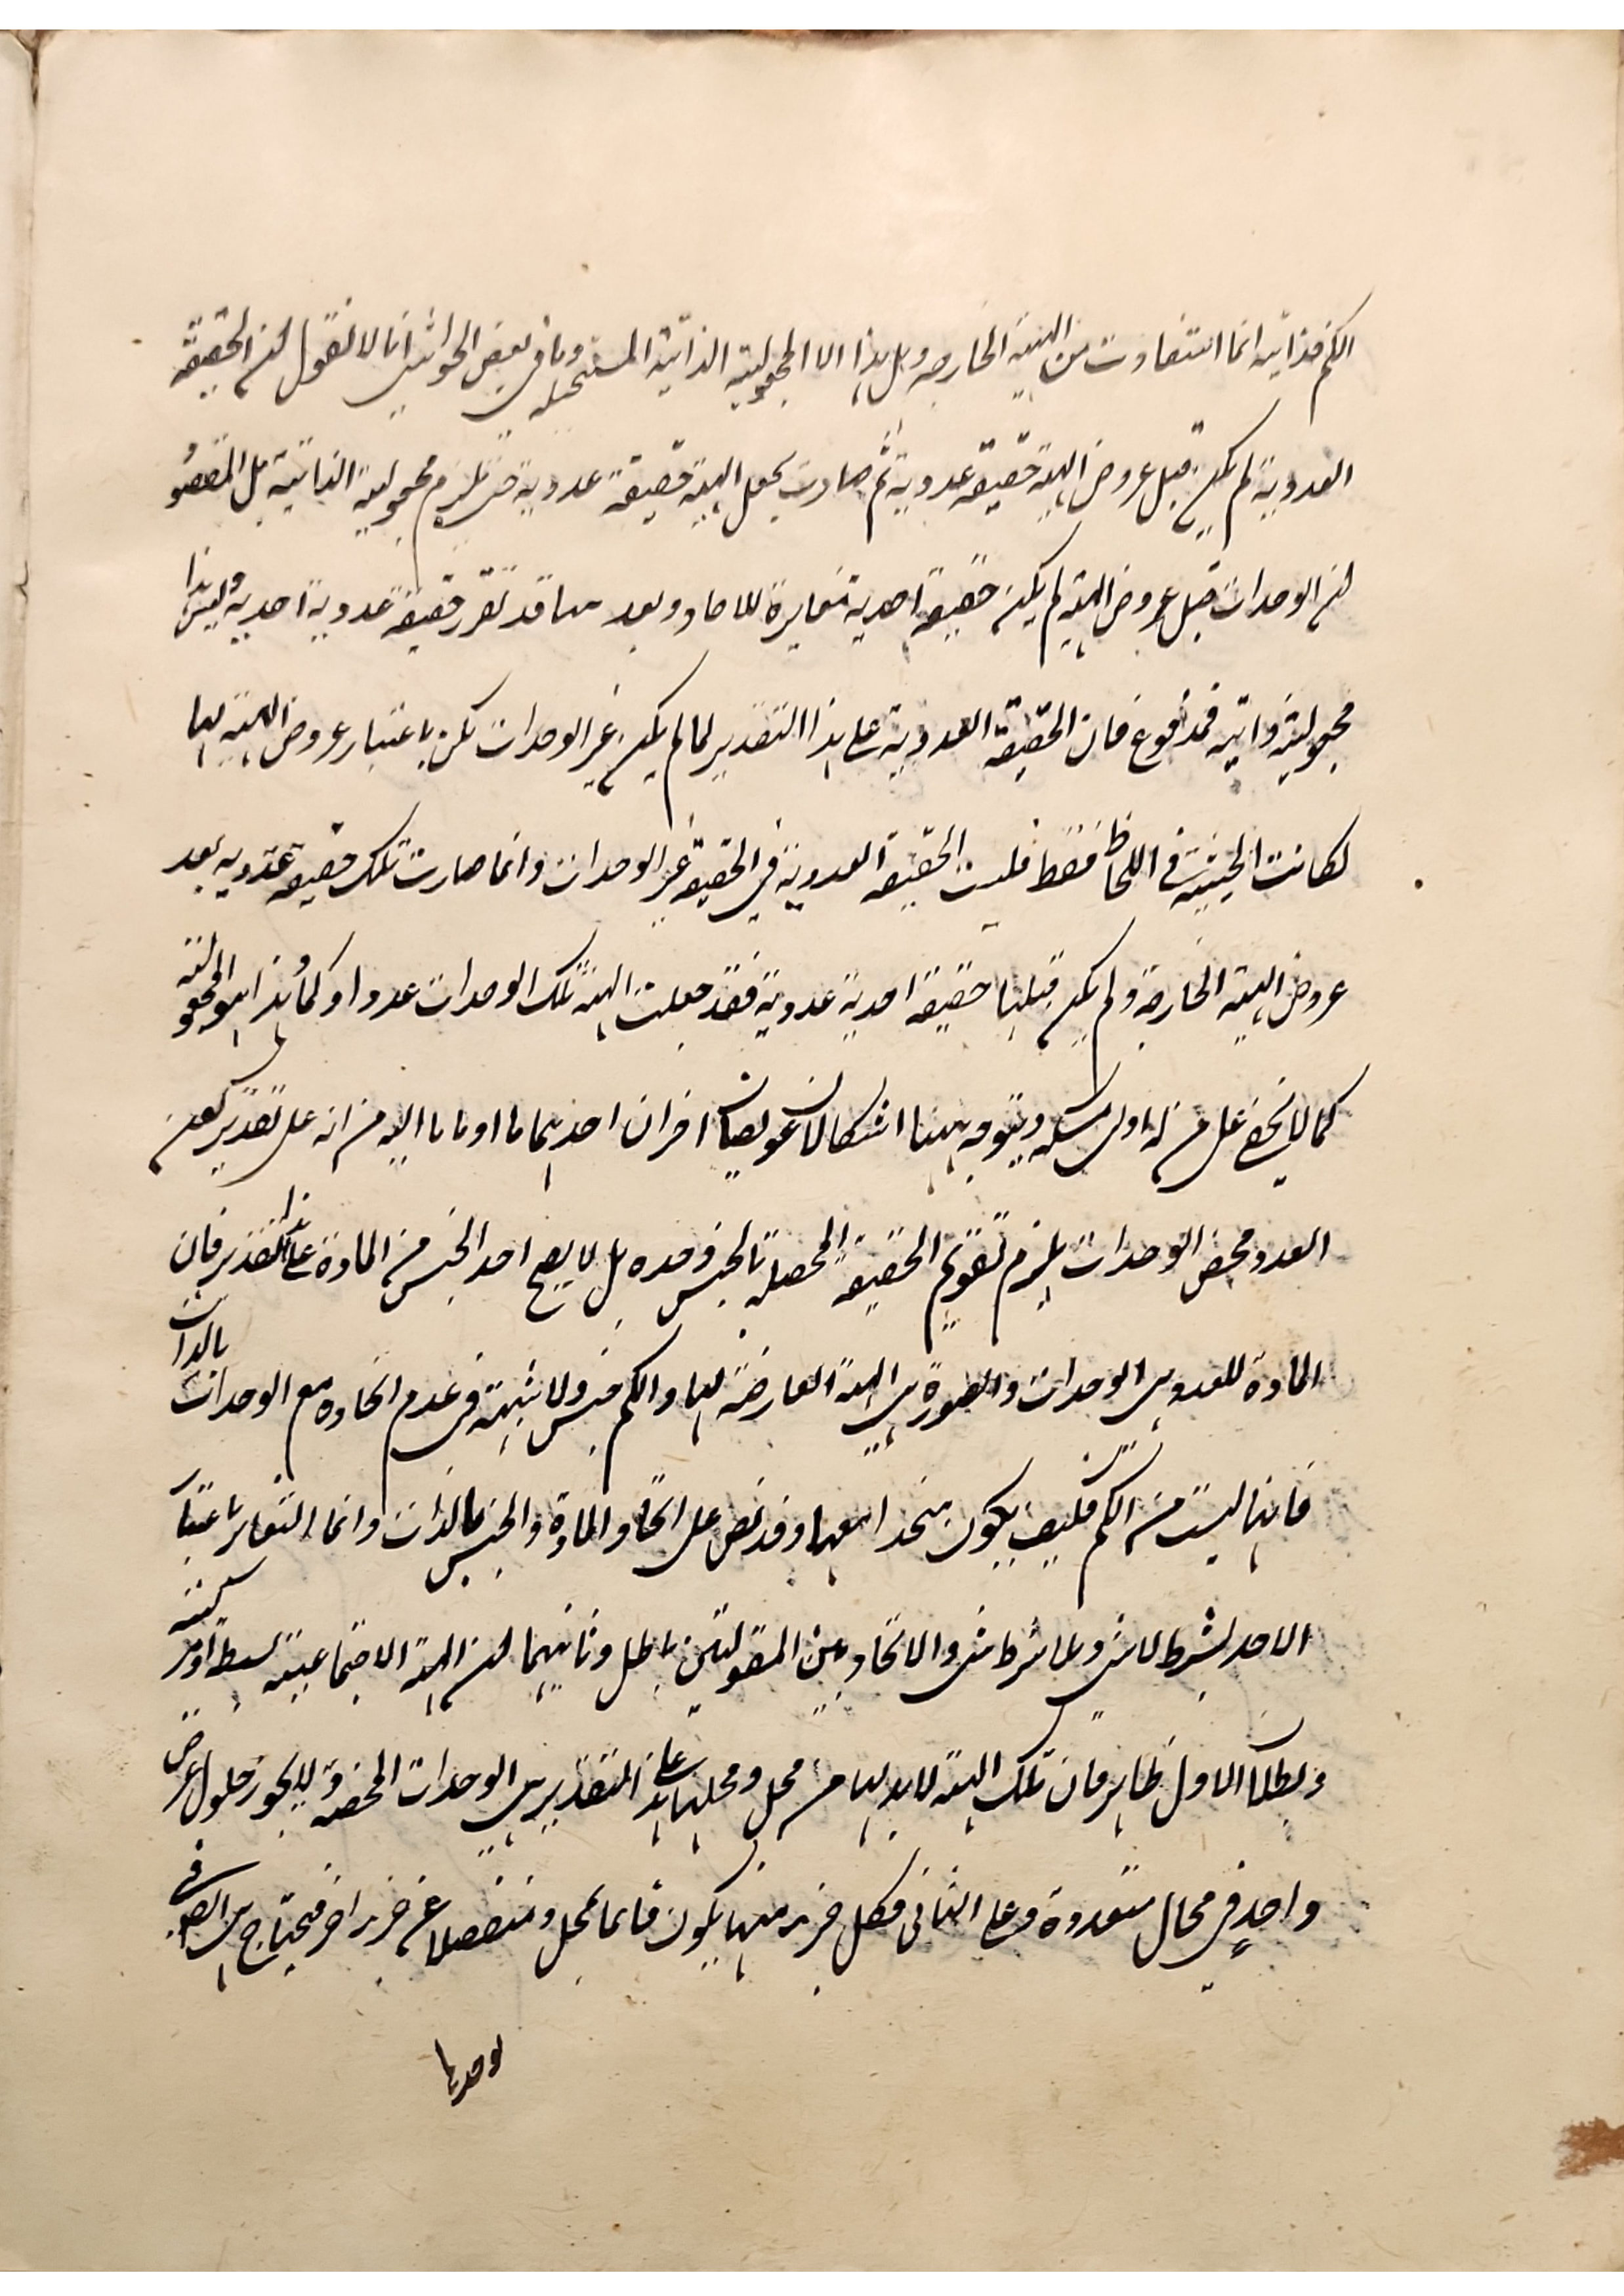 الكم فذاتيه انما استفادت من الهيئة الخارجه وهل هذا الا المجعولية الذاتية المستحيله وما فى بعض الحواشى انا لا نقول ان الحقيقة
العددية لم يكن قبل عروض الهيئة حقيقة عددية ثم صارت بجعل الهيئة حقيقة عددية حتى يلزم مجعولية الذاتية بل المقصود
ان الوحدات قبل عروض الهيئة لم يكن حقيقة احدية مغايرة للاحاد وبعدها قد تقرر حقيقة عددية احدية وليس هذا
مجعولية ذاتيه فمدفوع فان الحقيقة العددية على هذا التقدير لما لم يكن غير الوحدات لكن باعتبار عروض الهيئة لها
لكانت الحيثية فى اللحاظ فقط فليست الحقيقة العددية فى الحقيقة غير الوحدات وانما صارت تلك حقيقة عددية بعد
عروض الهيئة الخارجة ولم يكن قبلها حقيقة احدية عددية فقد جعلت الهيئة تلك الوحدات عددا وكما وهذا هو المجعولية
كما لا يخفى على من له ادنى مسكة ويتوجه ههنا اشكالان عويصان اخران احدهما ما اومانا اليه من انه على تقدير كون
العدد محض الوحدات يلزم تقويم الحقيقة المحصلة بالجنس وحده بل لا يصح اخذ الجنس من المادة على هذا التقدير فان
المادة للعدد هى الوحدات والصورة هى الهيئة العارضة لها والكم جنس ولا شبهة فى عدم اتحاده مع الوحدات بالذات
فانها ليست من الكم فكيف يكون متحدا معها وقد نص على اتحاد المادة والجنس بالذات وانما التغاير باعتبار
الاخذ بشرط لا شى وبلا شرط شى والاتحاد بين المقولتين باطل وثانيهما ان الهيئة الاجتماعية بسيطة او مركبة
وبطلان الاول ظاهر فان تلك الهيئة لا بد لها من محل ومحلها على هذا التقدير هى الوحدات المحضة ولا يجوز حلول عرض
واحد فى محال متعددة وعلى الثانى فكل جزء منها يكون قائما بمحل ومنفصلا عن جزء اخر فيحتاج هى ايضا فى
لوحدتها